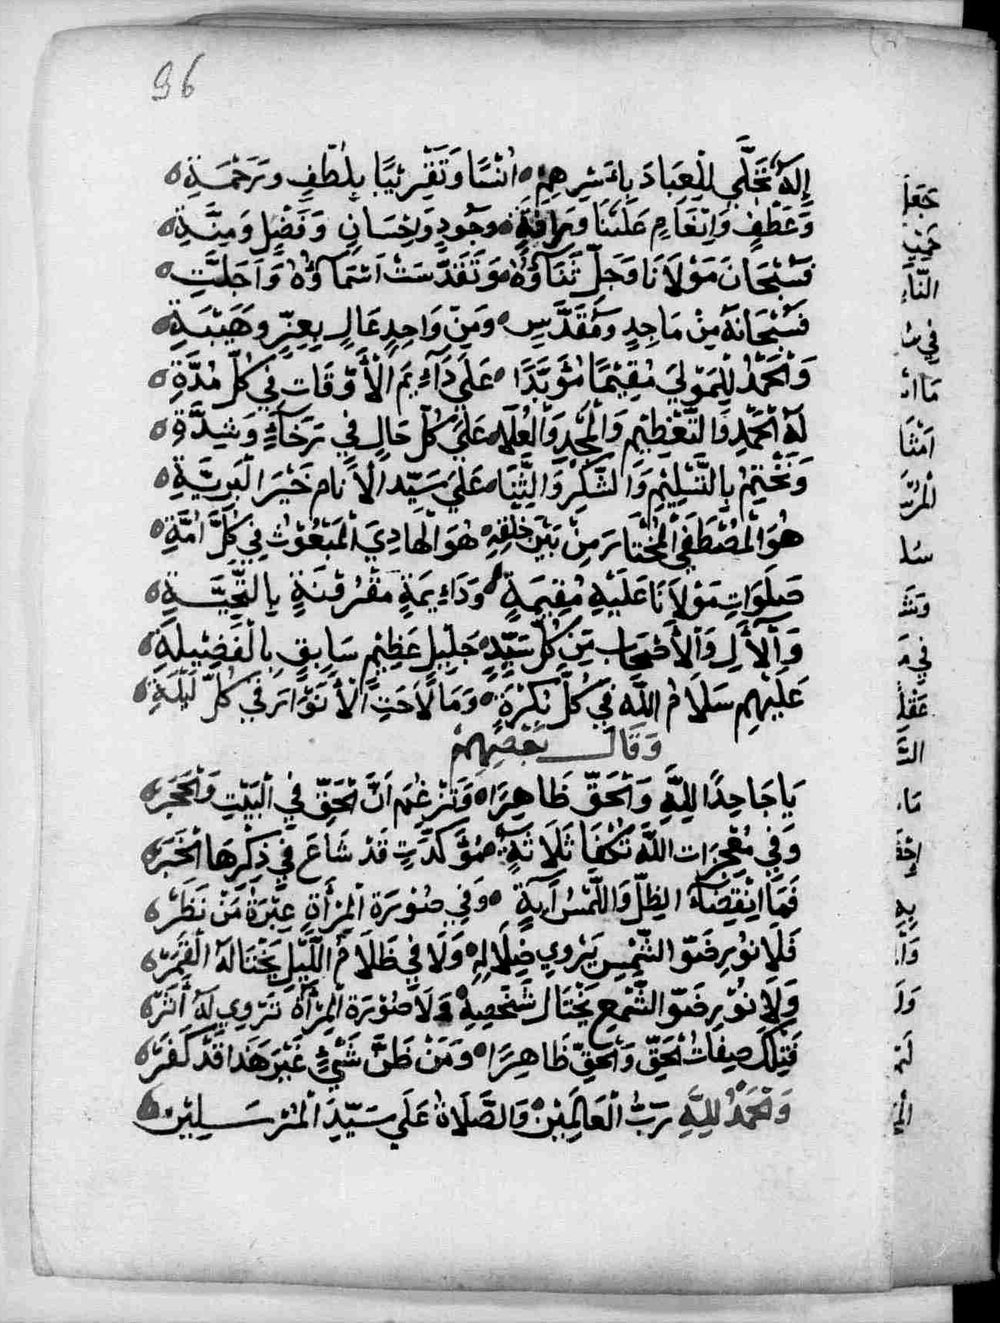 96
إِلَهٌ تَجَلَّى لِلْعِبَادَ بِأَسْرِهِمْ ۝ انْسًا وَتَقْرِيْبًا بِلُطْفٍ وَرَحْمَةِ ۝
وَعَطْفٍ وَانْعَامٍ عَلَيْنَا وَرَافَةٍ ۝ وَجُودٍ وَاِحْسَانٍ وَفَضْلٍ وَمِنَّةِ ۝
فَسُبْحَانَ مَوْلَانَا وَجَلَّ ثَنَآؤُهُ ۝ وَتَقَدَّسَتْ اَسْمَآؤُهُ وَاَجَلَّتِ ۝
فَسُبْحَانَهُ مِنْ مَاجِدٍ وَمُقَدَّسٍ ۝ وَمِنْ وَاحِدٍ عَالٍ بِعِزٍّ وَهَيْبَةِ ۝
وَالْحَمْدُ لِلْمَوْلَي مُقِيْمًا مُؤَبَّدًا ۝ عَلَي دَآءِيمَ الْأَوْقَاتِ فِي كُلِّ مُدَّةِ ۝
لَهُ الْحَمْدُ وَالتَّعْظِيْمِ وَالْمَجْدِ وَالْعُلَا ۝ عَلَيْ كُلِّ حَالٍ فِي رَخَآءٍ وَشِدَّةِ ۝
وَنَخْتِمْ بِالتَّسْلِيْمِ وَالشُّكْرِ وَالثَّنَا ۝ عَلَي سَيِّدِ الْاَنَامِ خَيْرَ الْبَرِيَّةِ ۝
هُوَ الْمُصْطَفَي الْمُخْتَارَ مِنْ بَيْنِ خَلْقِهِ ۝ هُوَ الْهَادِيَ الْمَبْعُوْثُ فِي كُلِّ اُمَّةِ ۝
صَلَوَاتِ مَوْلَانَا عَلَيْهِ مُقِيمَةٍ ۝ وَدَآءِيمَةٍ مَقْرُوْنَةٍ بِالتَّحِيَّةِ ۝
وَالْآلِ وَالْأَصْحَابِ مِن كُلِّ سَيِّدٍ ۝ جَلِيْلٍ عَظِيْمٍ سَابِقٍ بِالْفَضِيْلَةِ ۝
عَلَيْهِمِ سَلَامُ اللَّهِ فِي كُلِّ بُكْرَةٍ ۝ وَمَا لَاحَتِ الْأَنْوَارَ فِي كُلِّ لَيْلَةِ ۝
وَقَالَ بَعْضِهِمْ
يَا جَاحِدًا لِلَّهِ وَالْحَقِّ ظَاهِرًا ۝ وَتَزْعُمَ اَنَّ الْحَقِّ فِي الْبَيْتِ وَالْحَجَرْ ۝
وَفِي مُعْجِزَاتِ اللَّهِ تَكْفَا ثَلَاثَةٍ ۝ مُؤَكَّدَّتٍ قَدْ شَاعَ فِي ذِكْرِهَا الْخَبَرْ ۝
فَمَا اِنْقِضَآءُ الظِلِّ وَاللَّمْسُ آيَةٍ ۝ وَفِي صُوْرَةِ الْمِرْأَةِ عِبْرَةُ مَنْ نَظَرْ ۝
فَلَا نُوْرِ ضَوِّ الشَّمْسِ يَرْوِي ضِلَالِهِ ۝ وَلَا فِي ظَلَامِ اللَّيْلِ يَخْتَالُهُ الْقَمَرْ ۝
وَلَا نُوْرِ ضَوِّ الشَّمْعِ يَخْتَالُ شَخْصِهِ ۝ وَلَا صُوْرَةِ الْمِرْأَةُ تَرْوِي لَهُ أَثَرْ ۝
فَتِلْكَ صِفَاتُ الْحَقِّ وَالْحَقِّ ظَاهِرًا ۝ وَمَنْ ظَنَّ شَيْئٍ غَيْرَ هَذَا قَدْ كَفَرْ ۝
وَالْحَمْدُ لِلَّهِ رَبِّ الْعَالَمِيْنَ ۝ وَالصَّلَاةُ عَلَي سَيِّدِ الْمُرْسَلِيْنَ ۝